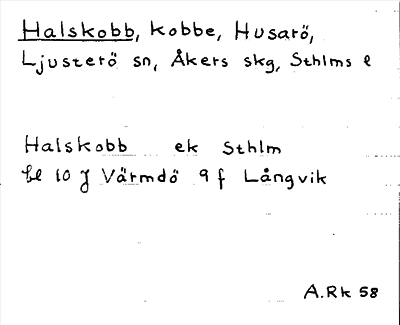 Halskobb, kobbe, Husarö,
Ljusterö sn, Åkers skg, Sthlms l
Halskobb ek Sthlm
bl 10 J Värmdö 9 f Långvik
A.Rk 58